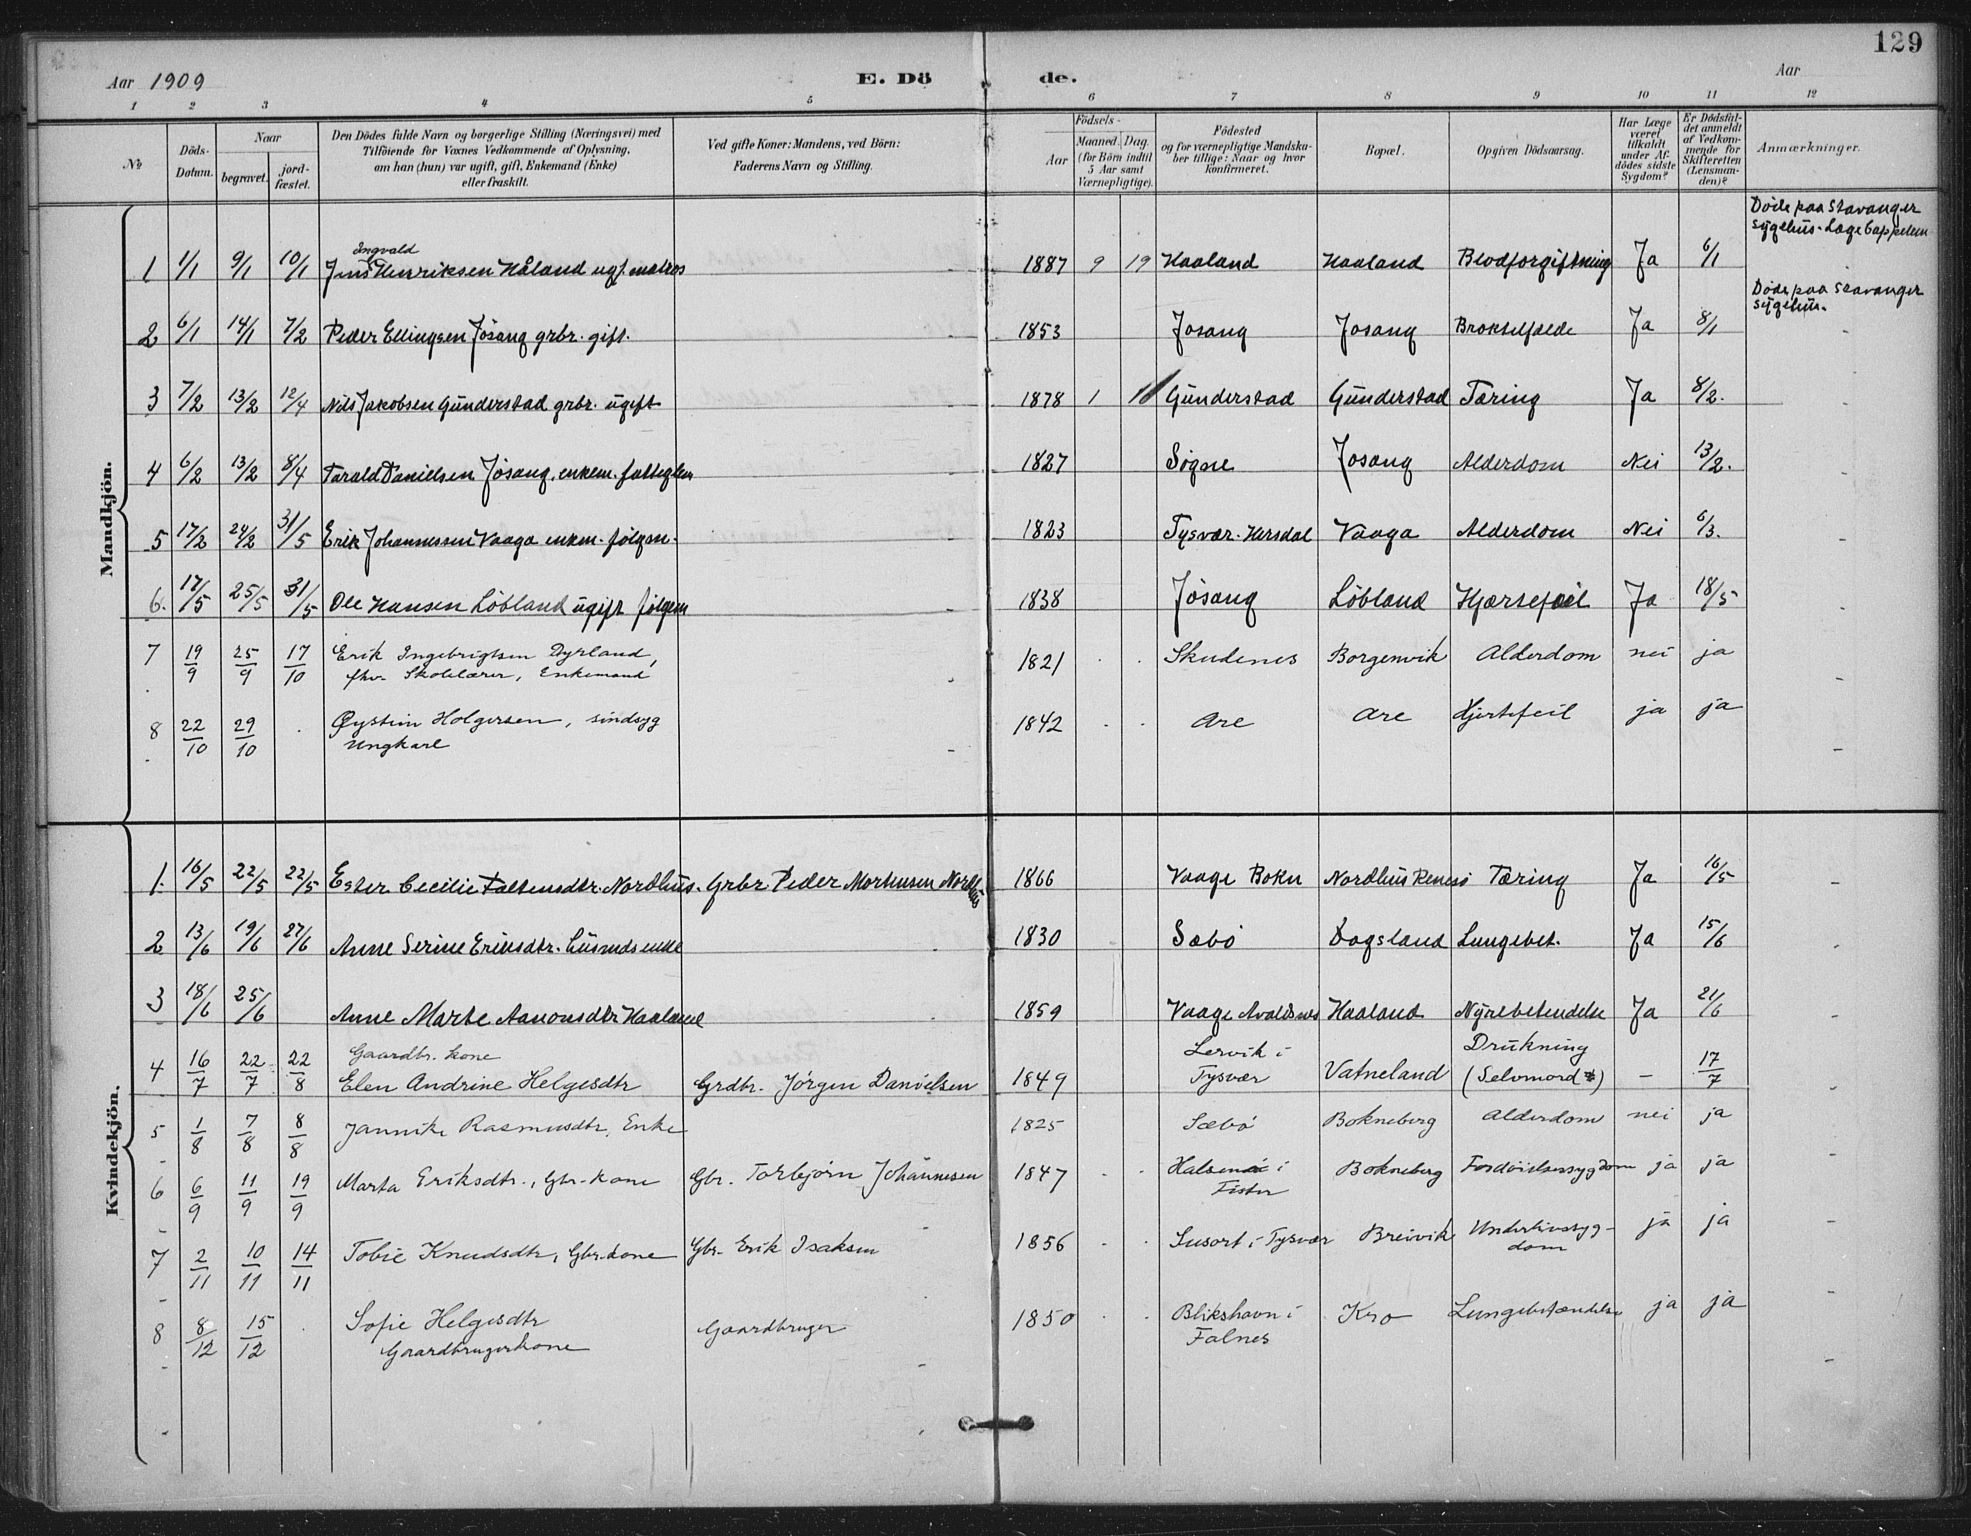 129
Aar 1909 E. Dö de. Aar
1 2 3 4 5 6 7 8 9 10 11 12
No
Döds-Datum.
Naar
begravet.
jord-fæstet.
Den Dödes fulde Navn og borgerlige Stilling (Næringsvei) med
Tilföiende for Voxnes Vedkommende af Oplysning,
om han (hun) var ugift, gift, Enkemand (Enke)
eller fraskilt.
Ved gifte Koner: Mandens, ved Börn:
Faderens Navn og Stilling.
Födsels-
Aar
Maaned. Dag.
(for Börn indtil
5 Aar samt
Værnepligtige).
Födested
og for værnepligtige Mandska-
ber tillige: Naar og hvor
konfirmeret.
Bopæl.
Opgiven Dödsaarsag.
Har Læge
været
tilkaldt
under Af-
dödes sidste
Sygdom?
Er Dödsfal-
det anmeldt
af Vedkom-
mende for
Skifteretten
(Lensman-
den)?
Anmærkninger.
Mandkjön.
Døde paa Stavanger
sygehus. Læge Cappelen
Ingvald
1 1/1 9/1 10/1 Jens Henriksen Håland ugf. matros 1887 9 19 Haaland Haaland Blodforgiftning Ja 6/1
Døde paa Stavanger
sygehus.
2 6/1 14/1 7/2 Peder Ellingsen Jösang grbr. gift. 1853 Josang Josang Ja 8/1
3 7/2 13/2 12/4 Nils Jakobsen Gunderstad grbr. ugift 1878 1 Gunderstad Gunderstad Tæring Ja 8/2.
4 6/2 13/2 8/4 Tarald Danielsen Jösang. enkem. fattiglem 1827 Søgne Josang Alderdom Nei 13/2.
5 17/2 24/2 31/5 Erik Johannessen Vaaga enkem. følgem. 1823 Tysvær. Hersdal Vaaga Alderdom Nei 6/3.
6. 17/5 25/5 31/5 Ole Hansen Löbland ugift følgem 1838 Jösang Löbland Hjærtefeil Ja 18/5
7 19/9 25/9 17/10 Erik Ingebrigtsen Dyrland, 1821 Skudenes Borgenvik Alderdom nei ja
fhv. Skolelærer, Enkemand
8 22/10 29/10 Øystein Holgersen, sindsyg 1842 Are Are Hjertefeil ja ja
Ungkarl
Kvindekjön.
1. 16/5 22/5 22/5 Ester Cecilie Faltensdtr. Nordhus. Grbr. Peder Mortensen Nordhus 1866 Vaage Bokn Nordhus Rennesö Tæring Ja 16/5
2 13/6 19/6 27/6 Anne Serine Eriksdtr. husmdsenke 1830 Sæbö Dagsland Lungebet. Ja 15/6
3 18/6 25/6 Anne Marte Aanonsdtr Haaland 1859 Vaage Avaldsnes Haaland Nyrebetendelse Ja 21/6
Gaardbr. kone Lervik i Drukning
4 16/7 22/7 22/8 Elen Andrine Helgesdtr Grdbr. Jörgen Danielsen 1849 Tysvær Vatneland (Selvmord) - 17/7
5 1/8 7/8 8/8 Jannike Rasmusdtr, Enke 1825 Sæbö Bokneberg Alderdom nei ja
6 6/9 11/9 19/9 Marta Eriksdtr., Gbr.kone Gbr. Torbjörn Johannesen 1847 Halsenö i Bokneberg Fordöielsessygdom ja ja
Fister
7 2/11 10/11 14/11 Tobie Knudsdtr, Gbr.kone Gbr. Erik Isaksen 1856 Susort i Tysvær Breivik Underlivssyg- ja ja
dom
8 8/12 15/12 Sofie Helgesdtr Gaardbruger 1850 Blikshavn i Kro Lungebetændelse ja ja
Gaardbrugerkone Falnes